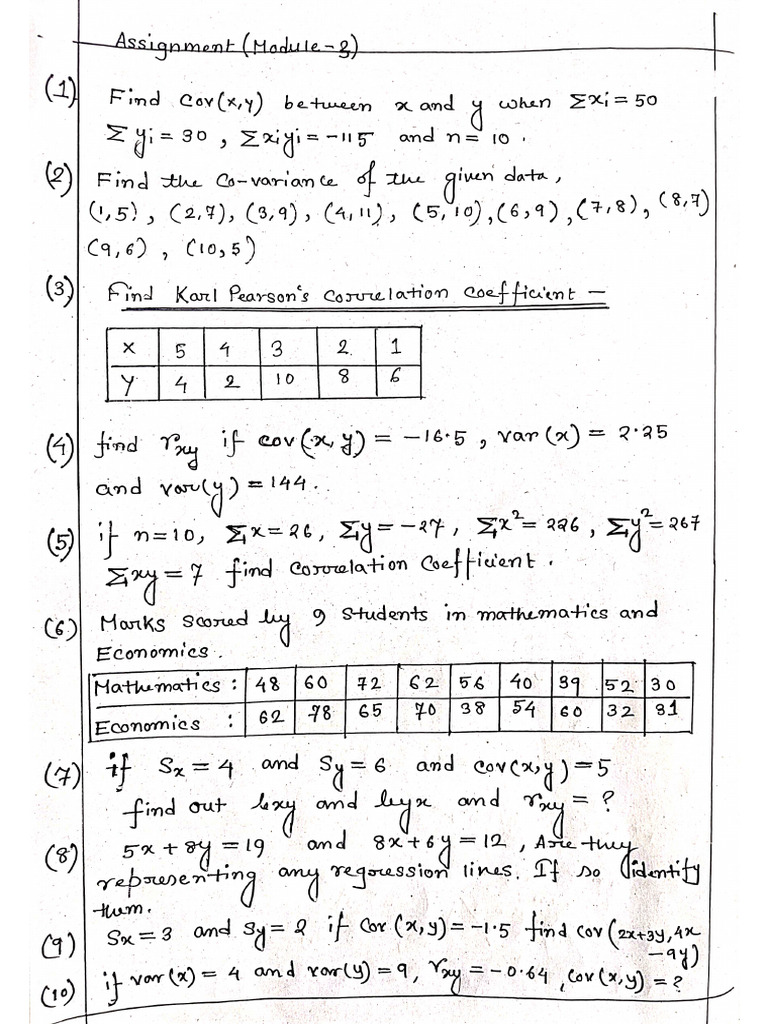 Assignment (Module-3)
(1) Find Cov(x,y) between x and y when Σxi = 50
Σyi = 30 , Σxiyi = -115 and n = 10 .
(2) Find the Co-variance of the given data,
(1,5), (2,7), (3,9), (4,11), (5,10), (6,9), (7,8), (8,7)
(9,6) , (10,5)
(3) Find Karl Pearson's correlation coefficient —
X 5 4 3 2 1
Y 4 2 10 8 6
(4) find rxy if cov(x,y) = -16.5 , var(x) = 2.25
and var(y) = 144 .
(5) if n=10, Σx=26, Σy=-27, Σx²=226, Σy²=267
Σxy = 7 find correlation coefficient .
(6) Marks scored by 9 students in mathematics and
Economics .
Mathematics : 48 60 72 62 56 40 39 52 30
Economics : 62 78 65 70 38 54 60 32 31
(7) if Sx = 4 and Sy = 6 and cov(x,y) = 5
find out bxy and byx and rxy = ?
(8) 5x + 8y = 19 and 8x + 6y = 12 , Are they
representing any regression lines. If so identify
them.
(9) Sx = 3 and Sy = 2 if Cov (x,y) = -1.5 find cov(2x+3y, 4x
-9y)
(10) if var(x) = 4 and var(y) = 9, rxy = -0.64 , cov(x,y) = ?